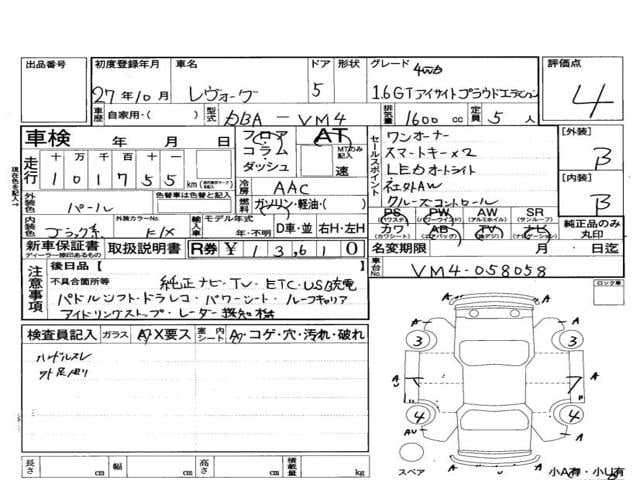 出品番号
初度登録年月 車名 ドア 形状 グレード 評価点
27年10月 レヴォーグ 5 4WD
1.6GTアイサイトプラウドエディション 4
車歴 自家用・( ) 型式 DBA-VM4 排気量 1600 cc 定員 5 人
車検 年 月 日
フロア コラム・ダッシュ AT MTのみ記入 速
走行 十 万 千 百 十 一
101755 km
冷房 AAC
燃料 ガソリン・軽油・( )
セールスポイント
ワンオーナー
スマートキー×2
LEDオートライト
社外AW
クルーズコントロール
[外装] B
[内装] B
現在色を記入→
外装色 パール 色替車は色替前の色
内装色 ブラック系 外装カラーNo. K1X
輸入車 モデル年式 年・不明 D車・並 右H・左H
PS (パワステ) PW (パワーウインド) AW (アルミホイル) SR (サンルーフ)
カワ (カワシート) AB (エアバッグ) TV ナビ (ナビゲーション)
純正品のみ丸印
新車保証書 ディーラー捺印あるもの 取扱説明書 R券 ¥ 13,610
名変期限 月 日迄
車台No. VM4-058058
注意事項
後日品 [ ]
不具合箇所等 純正ナビ・TV・ETC・USB充電
パドルシフト・ドラレコ・パワーシート・ルーフキャリア
アイドリングストップ・レーダー探知機
ロック車
検査員記入 ガラス A・X要ス 室内シート A・コゲ・穴・汚れ・破れ
ハンドルスレ
外足廻り
3 A 3
A A
A
U
4 A 4
AU A
A
スペア 小A有・小U有
長さ cm 幅 cm 高さ cm 積載量 kg